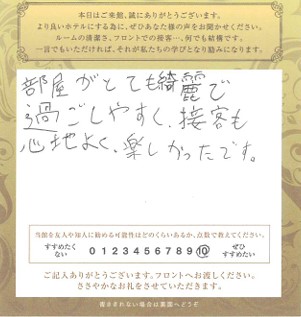 本日はご来館、誠にありがとうございます。
より良いホテルにする為に、ぜひあなた様の声をお聞かせください。
ルームの清潔さ、フロントでの接客…、何でも結構です。
一言でもいただければ、それが私たちの学びとなり励みになります。
部屋がとても綺麗で
過ごしやすく、接客も
心地よく、楽しかったです。
当館を友人や知人に勧める可能性はどのくらいあるか、点数で教えてください。
すすめたくない 0 1 2 3 4 5 6 7 8 9 10 ぜひすすめたい
ご記入ありがとうございます。フロントへお渡しください。
ささやかなお礼をさせていただきます。